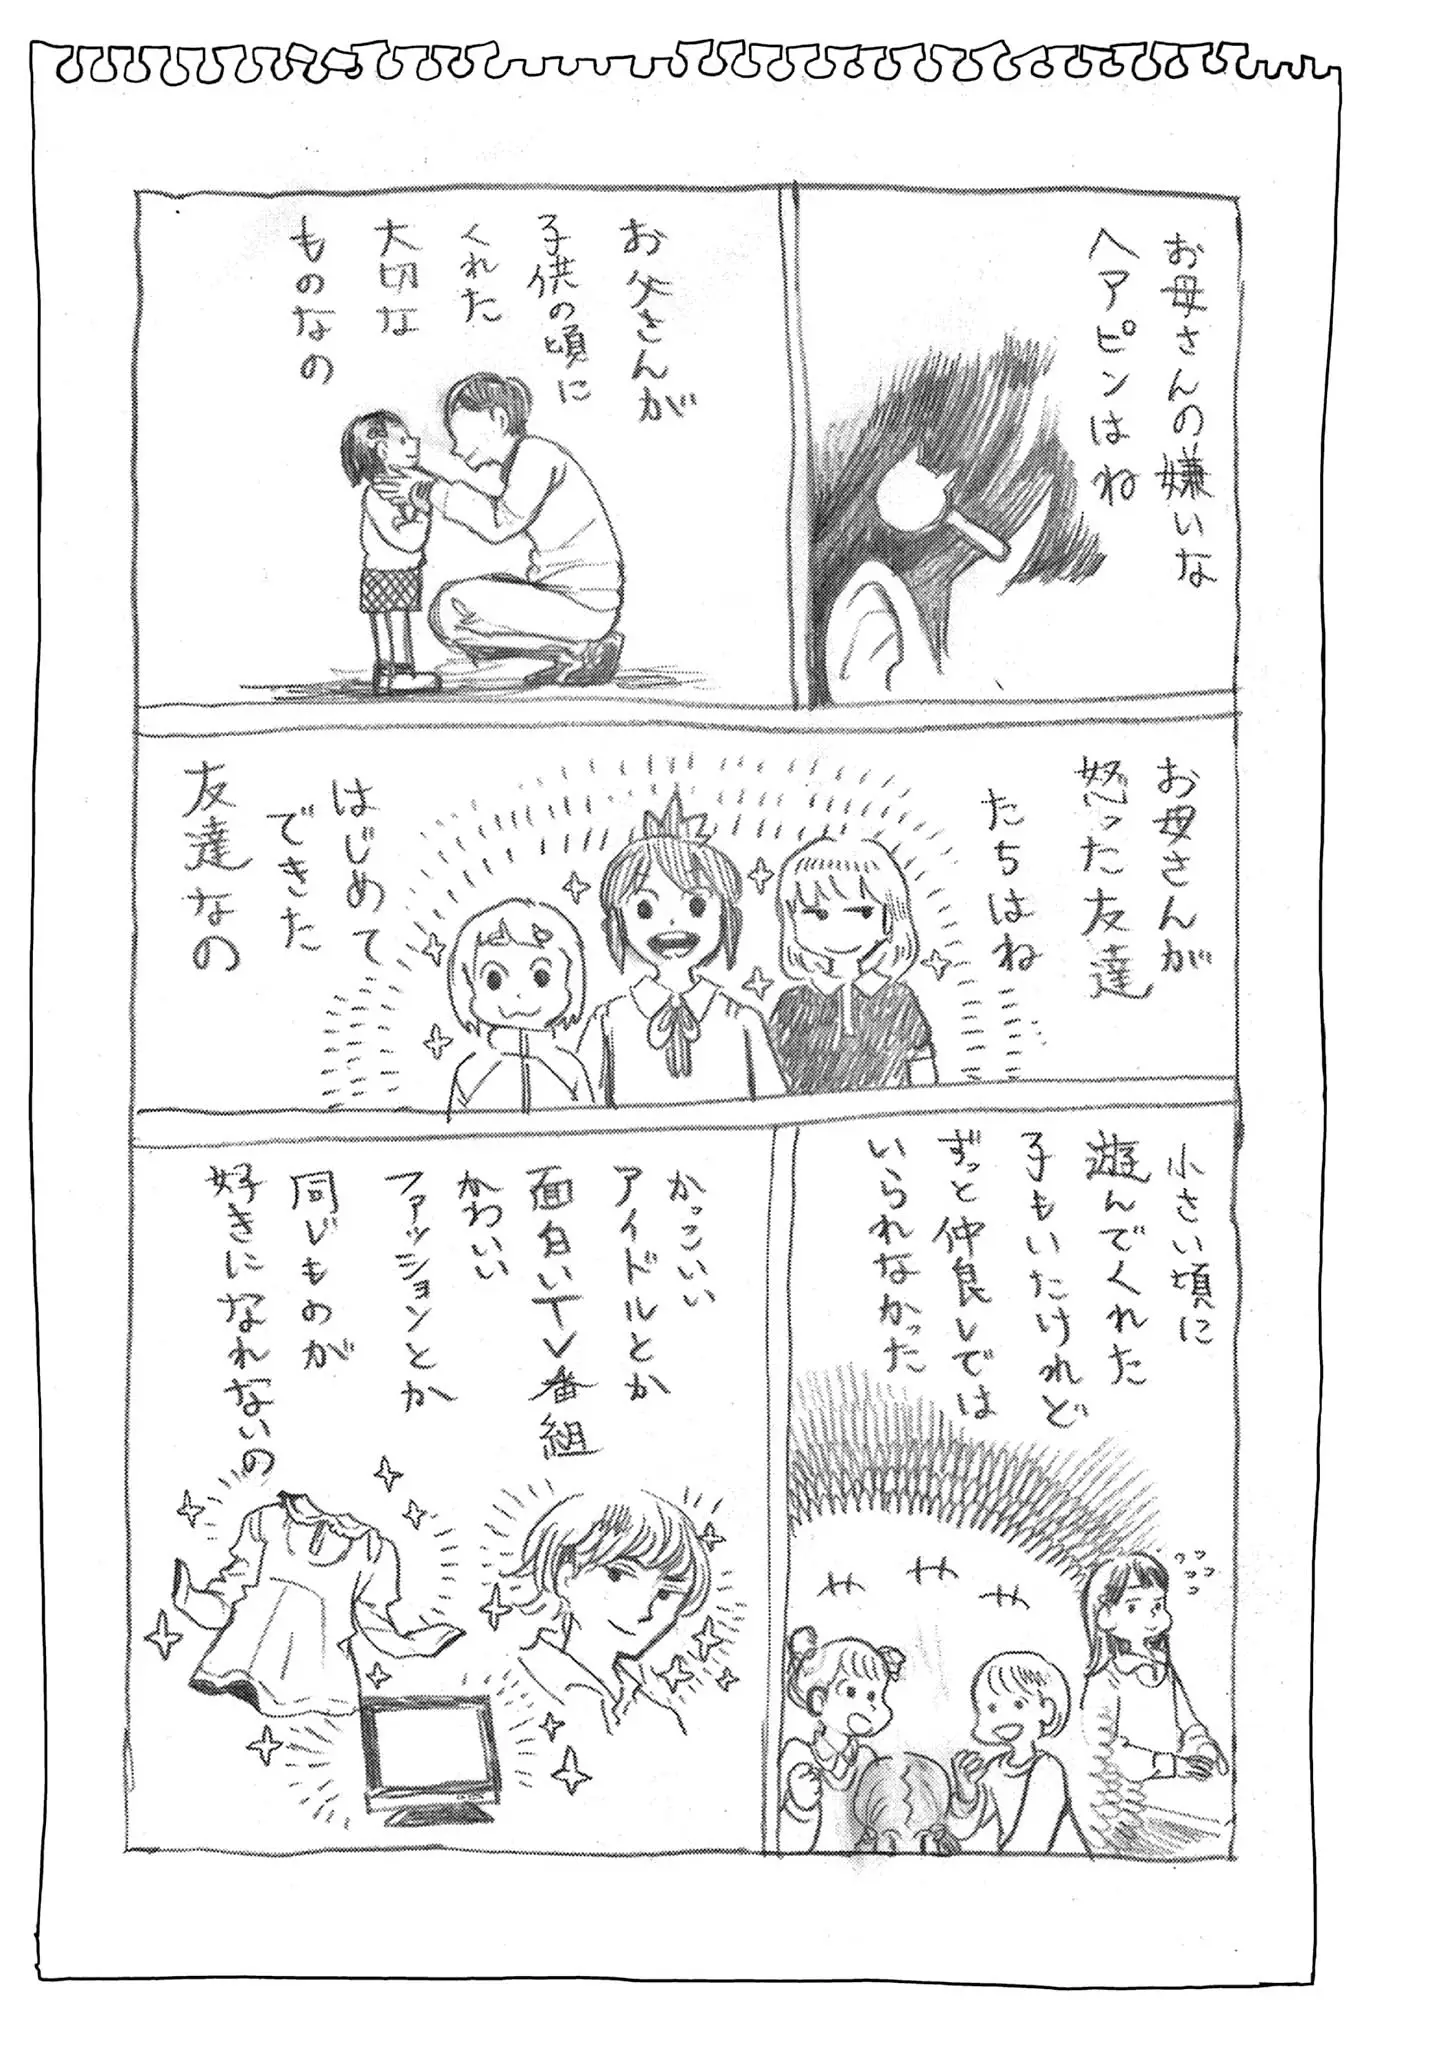 お母さんの嫌いな
ヘアピンはね
お父さんが
子供の頃に
くれた
大切な
ものなの
お母さんが
怒った友達
たちはね
はじめて
できた
友達なの
小さい頃に
遊んでくれた
子もいたけれど
ずっと仲良しでは
いられなかった
かっこいい
アイドルとか
面白いTV番組
かわいい
ファッションとか
同じものが
好きになれないの